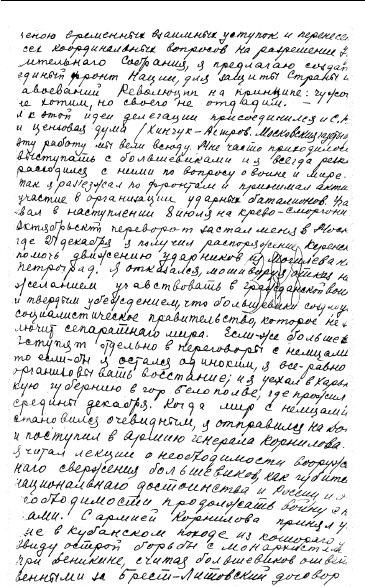 ценою временных взаимных уступок и перенесе
сек координальных вопросов на разрешение У
ительного Собрания, я предлагаю создат
единый фронт Нации, для защиты Страны и
авоеваний Революции на принципе: чужог
е хотим, но своего не отдадим. —
к этой идеи делегации присоединился и С.А.
и цензовая дума / Хинчук-Астров. Московский
эту работу мы вели всюду. Мне часто приходилос
выступать с большевиками и я всегда резко
расходился с ними по вопросу о войне и мире.
так я разъезжал по фронтам и принимал акти
участие в организации ударных батальонов.
вал в наступлении 8 июля на крево-сморгони
Октябрьский переворот застал меня в
где 27 декабря я получил распоряжение Керенск
помочь движению ударников из Могилева н
петроград. Я отказался, мотивируя отказ не
желанием участвовать в гражданской вой
и твердым убеждением, что большевики
социалистическое правительство, которое не
лючит сепаратнаго мира. Если-же большев
вступят отдельно в переговоры с немцами
то если-бы я остался одиноким, я все-равно
организовывать восстание; и я уехал в Харьк
кую губернию в гор Белополье, где прожил
средины декабря. Когда мир с немцами
становился очевидным, я отправился на До
и поступил в армию Генерала Корнилова.
я читал лекции о необходимости вооруж
наго свержения большевиков, как губите
национальнаго достоинства и России, и о
необходимости продолжать войну с
ами. С армией Корнилова
ие в Кубанском походе из которого
ввиду острой борьбы с монархистам
при Деникине, считая большевиков ответ
венными за Брест-Литовский договор